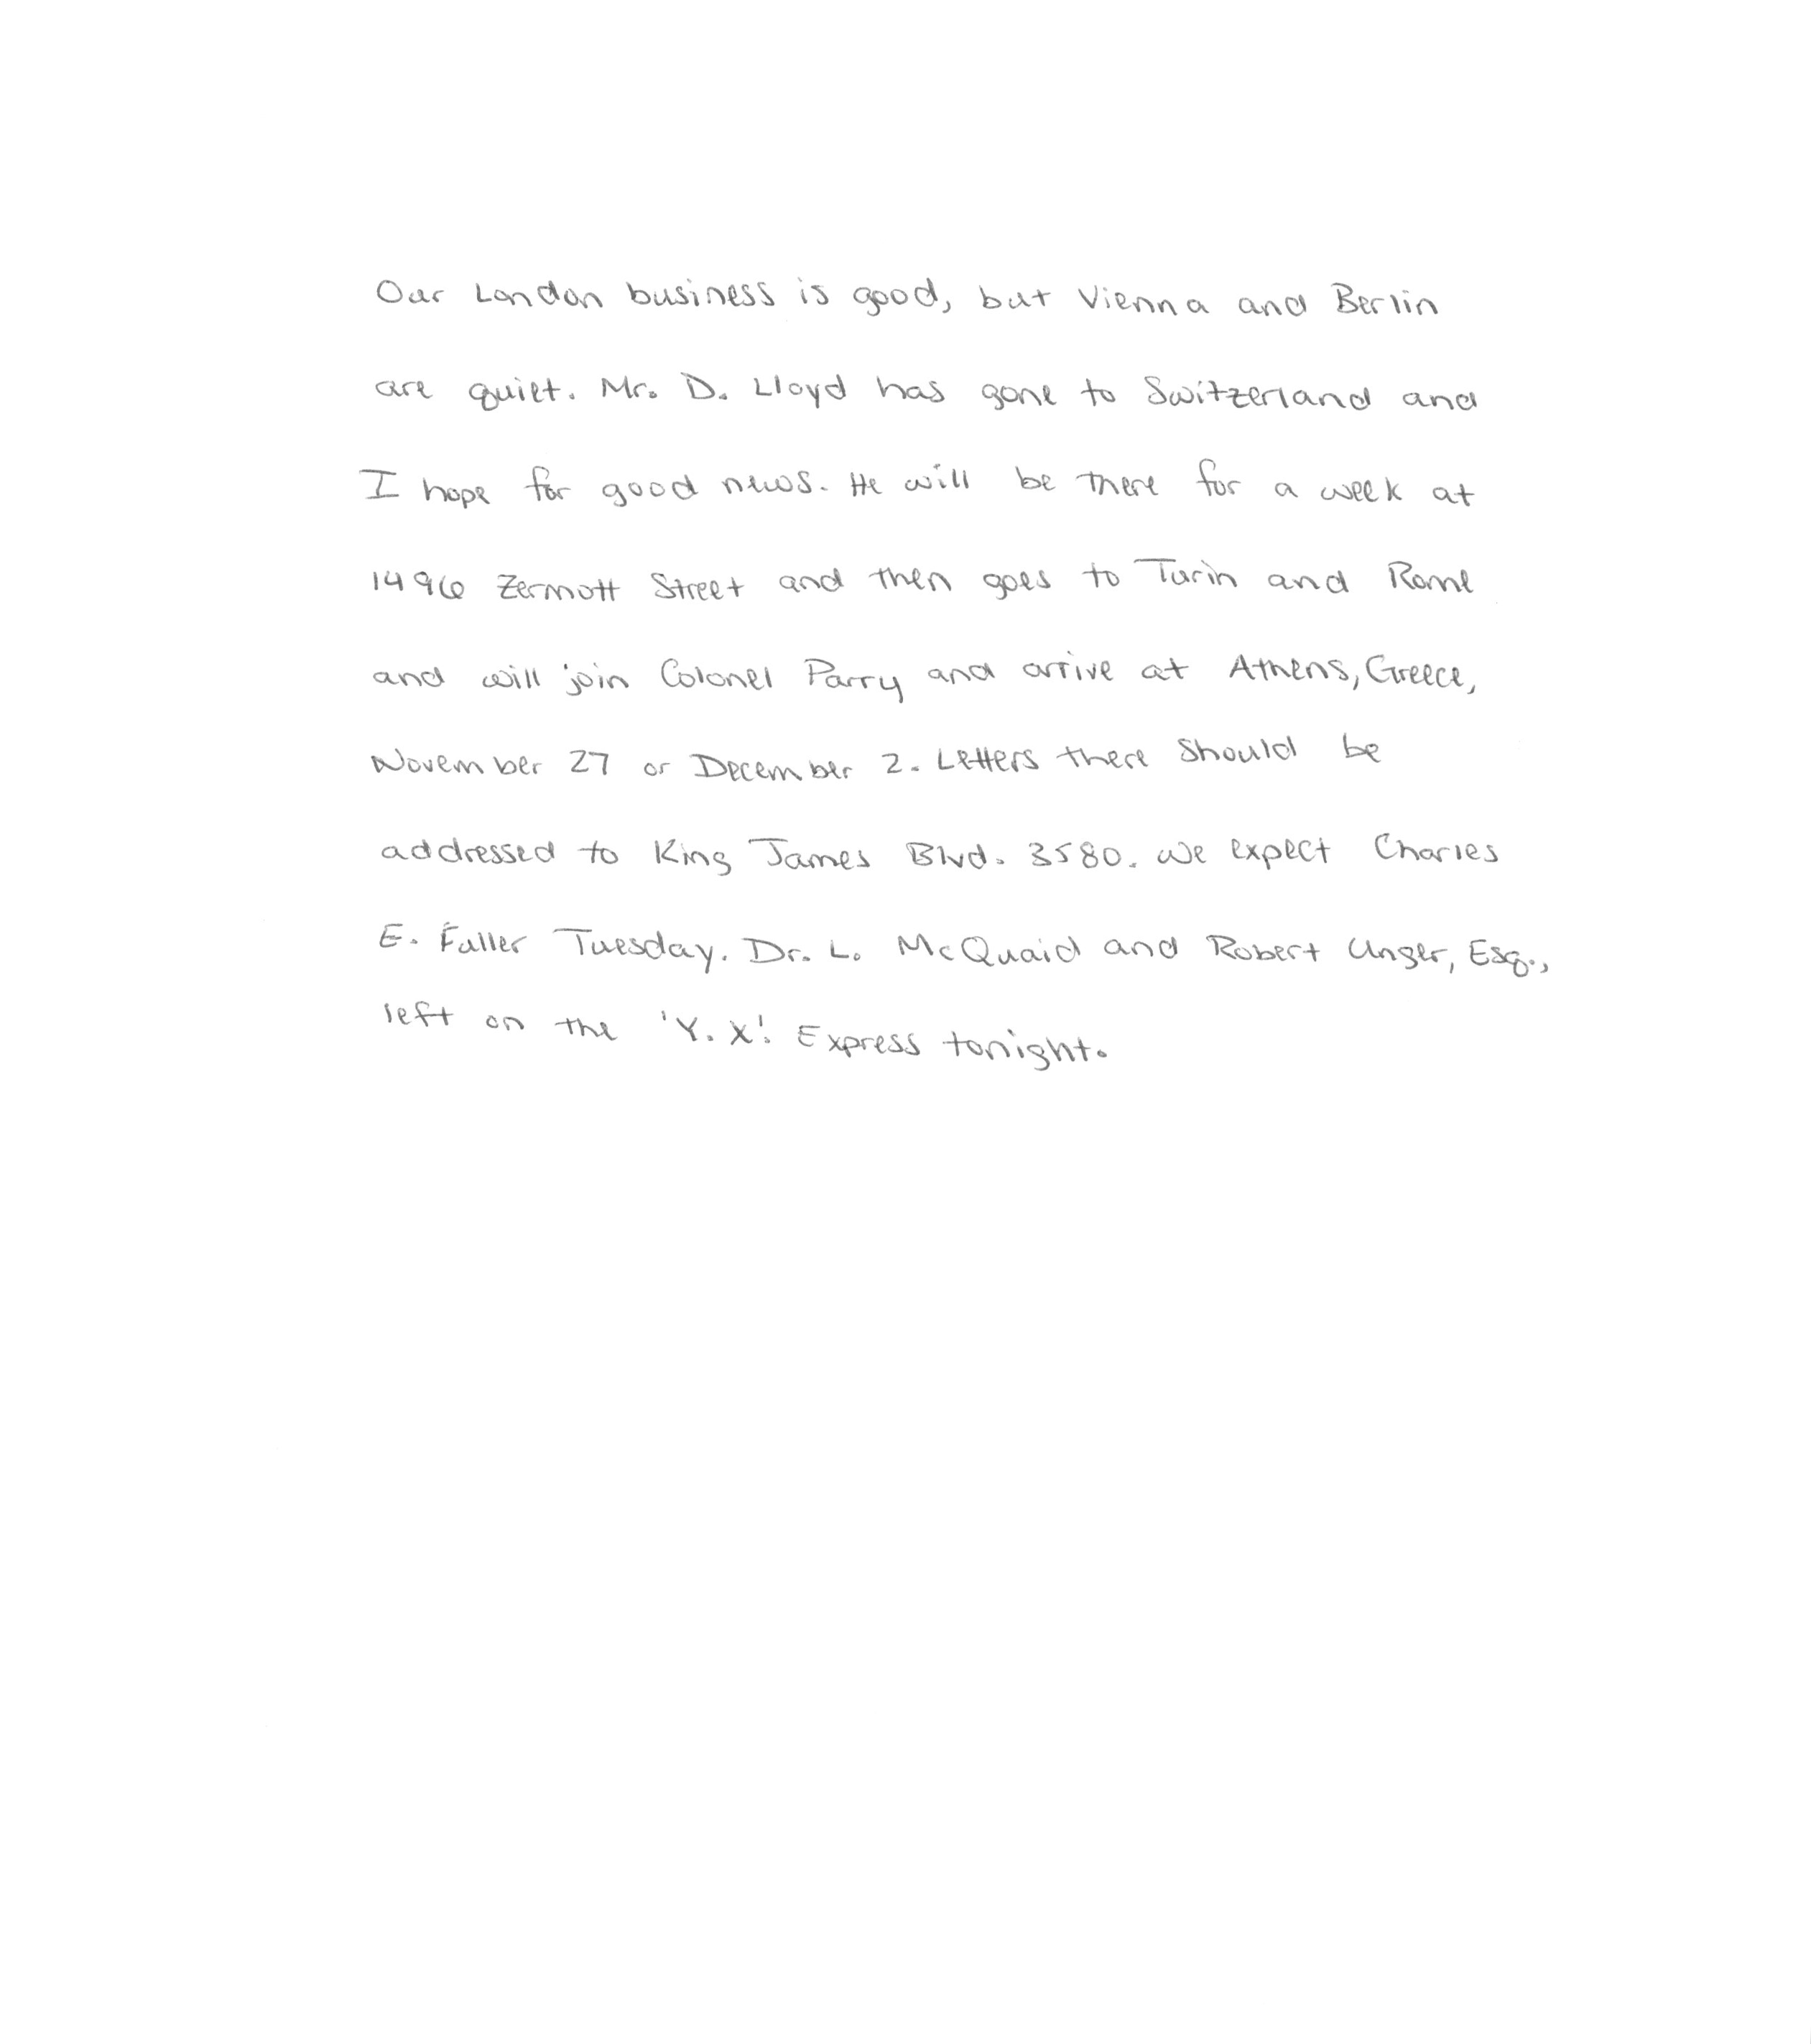 Our London business is good, but Vienna and Berlin
are quiet. Mr. D. Lloyd has gone to Switzerland and
I hope for good news. He will be there for a week at
1496 Zermott Street and then goes to Turin and Rome
and will join Colonel Parry and arrive at Athens, Greece,
November 27 or December 2. Letters there should be
addressed to King James Blvd. 3580. We expect Charles
E. Fuller Tuesday. Dr. L. McQuaid and Robert Unger, Esq.,
left on the 'Y. X.' Express tonight.